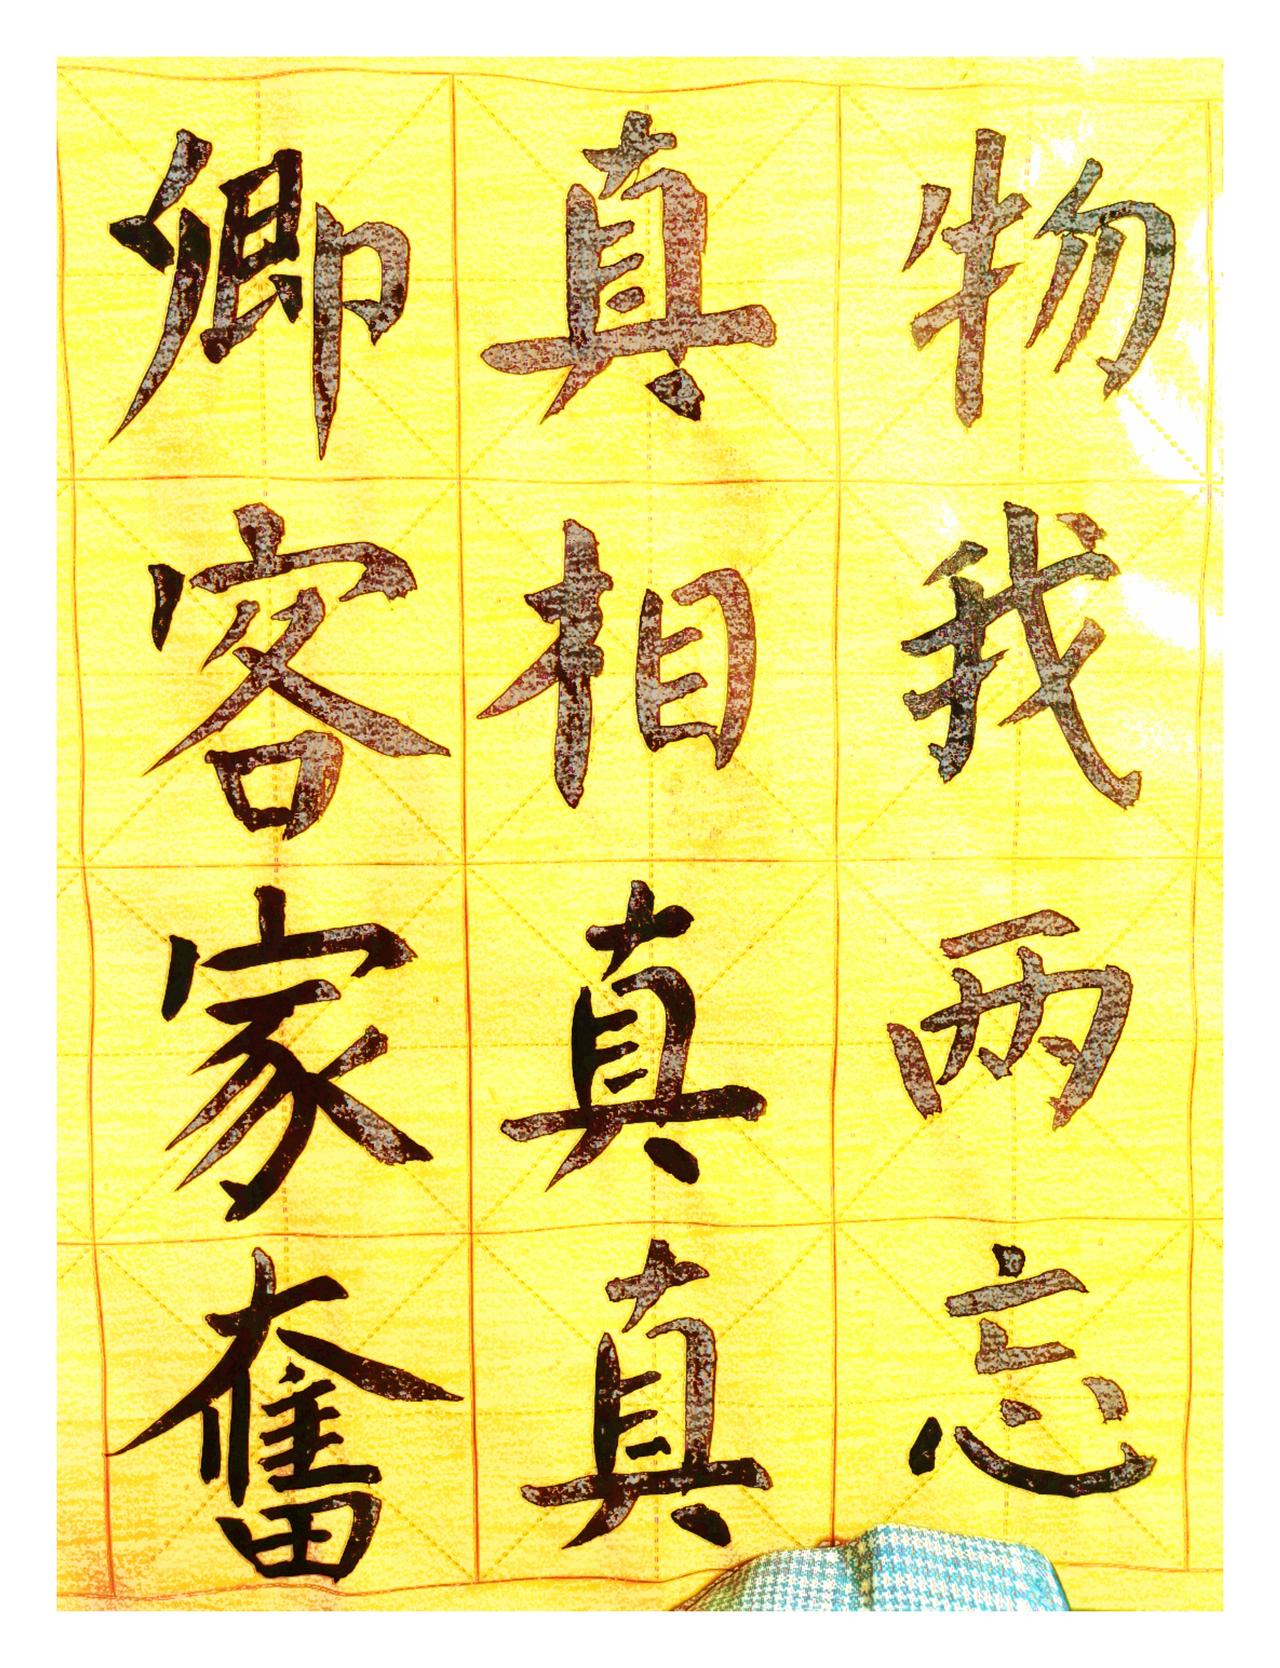 物我两忘
真相真真
卿客家奮